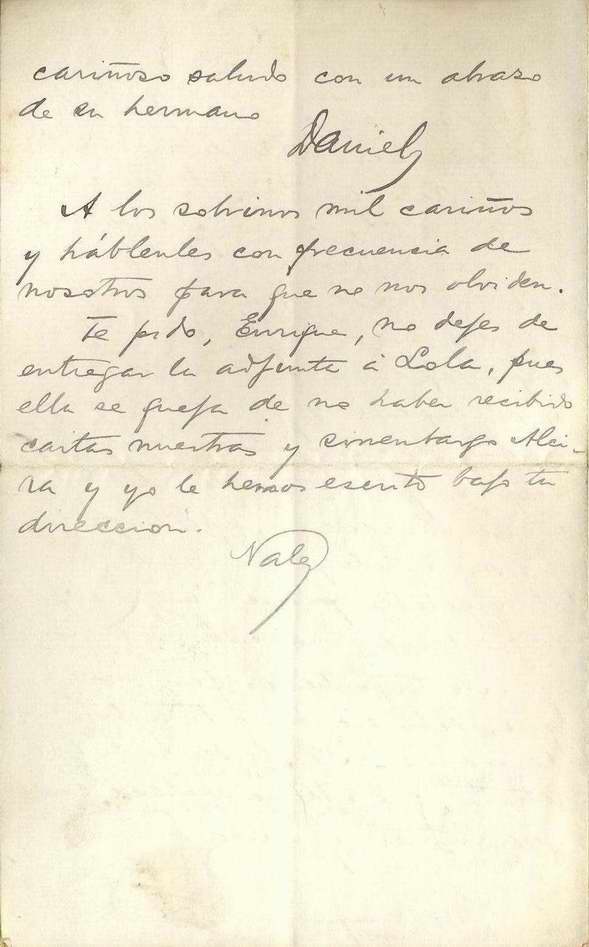 cariñoso saludo con un abrazo
de su hermano
Daniel
A los sobrinos mil cariños
y háblenles con frecuencia de
nosotros para que no nos olviden.
Te pido, Enrique, no dejes de
entregar la adjunta á Lola, pues
ella se queja de no haber recibido
cartas nuestras y sinembargo Alci-
ra y yo le hemos escrito bajo tu
dirección.
Vale